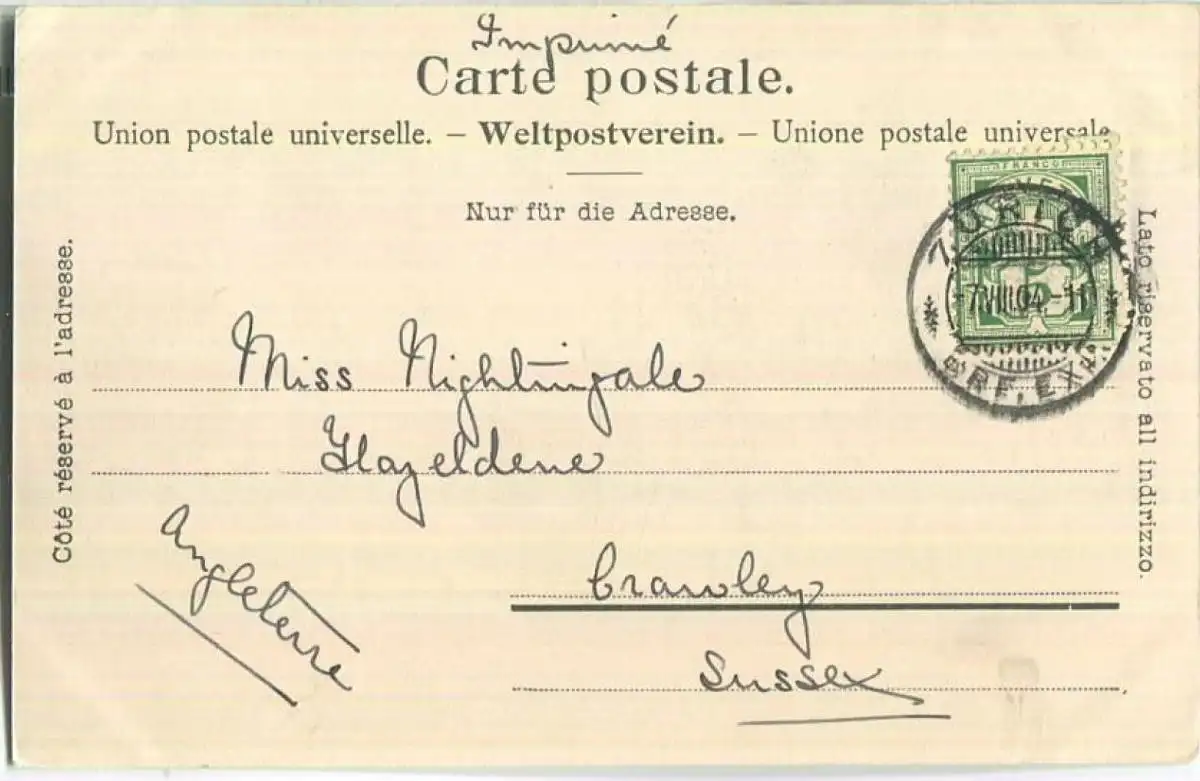 Imprimé
Carte postale.
Union postale universelle. – Weltpostverein. – Unione postale universale
Nur für die Adresse.
FRANCO
ZÜRICH
-7.VIII.04.-11
BRF. EXP.
Côté réservé à l'adresse.
Lato riservato all indirizzo.
Miss Nightingale
Hazeldene
Crawley
Sussex
Angleterre